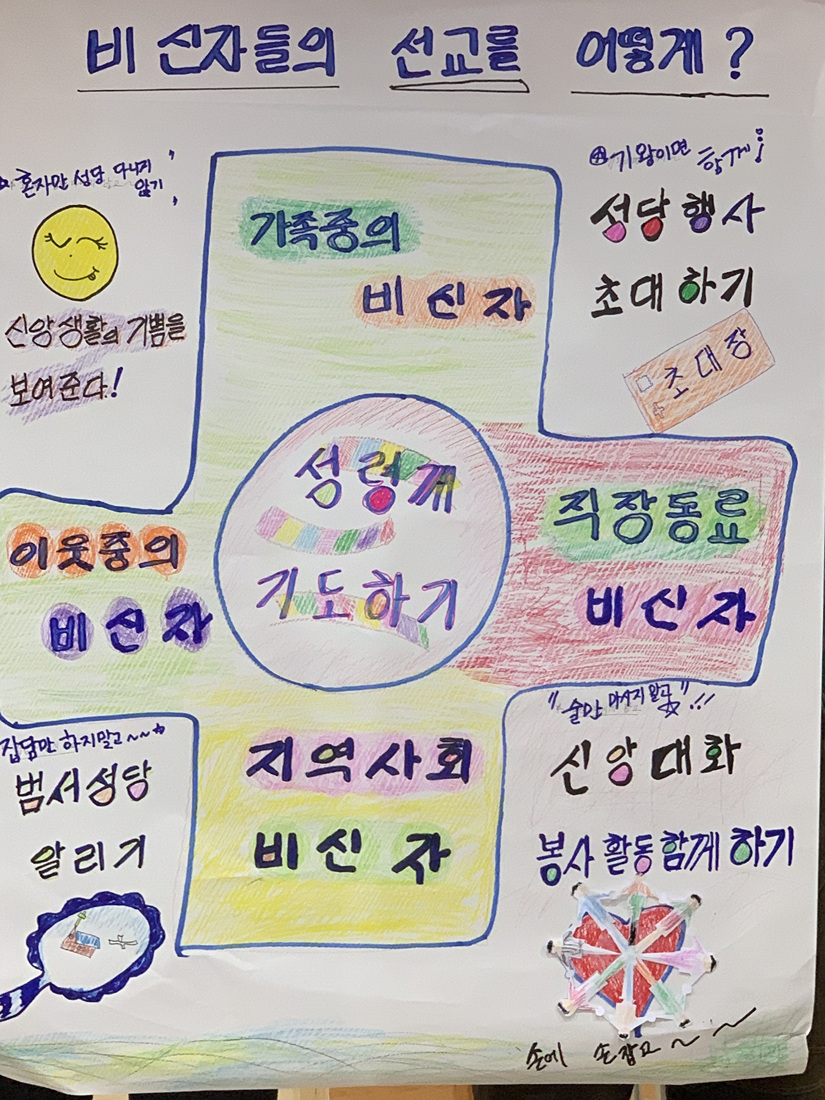 비 신자들의 선교를 어떻게?
혼자만 성당 다니지
않기
신앙생활의 기쁨을
보여준다!
가족중의
비신자
기왕이면 함께!
성당행사
초대하기
초대장
성령께
기도하기
이웃중의
비신자
직장동료
비신자
잡담만 하지말고~~
범서성당
알리기
지역사회
비신자
"술만 마시지 말고"!!
신앙대화
봉사활동함께하기
손에 손잡고~~